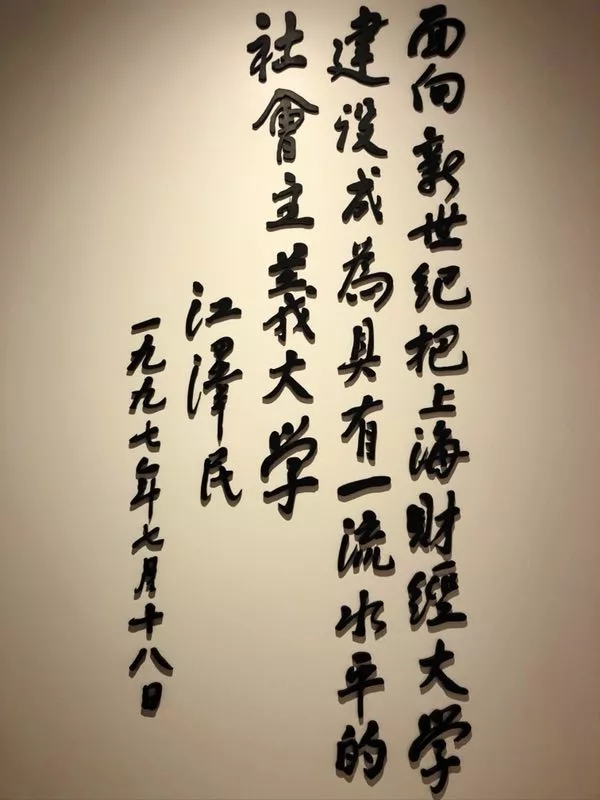 面向新世纪把上海财經大学
建设成為具有一流水平的
社會主義大学
江澤民
一九九七年七月十八日